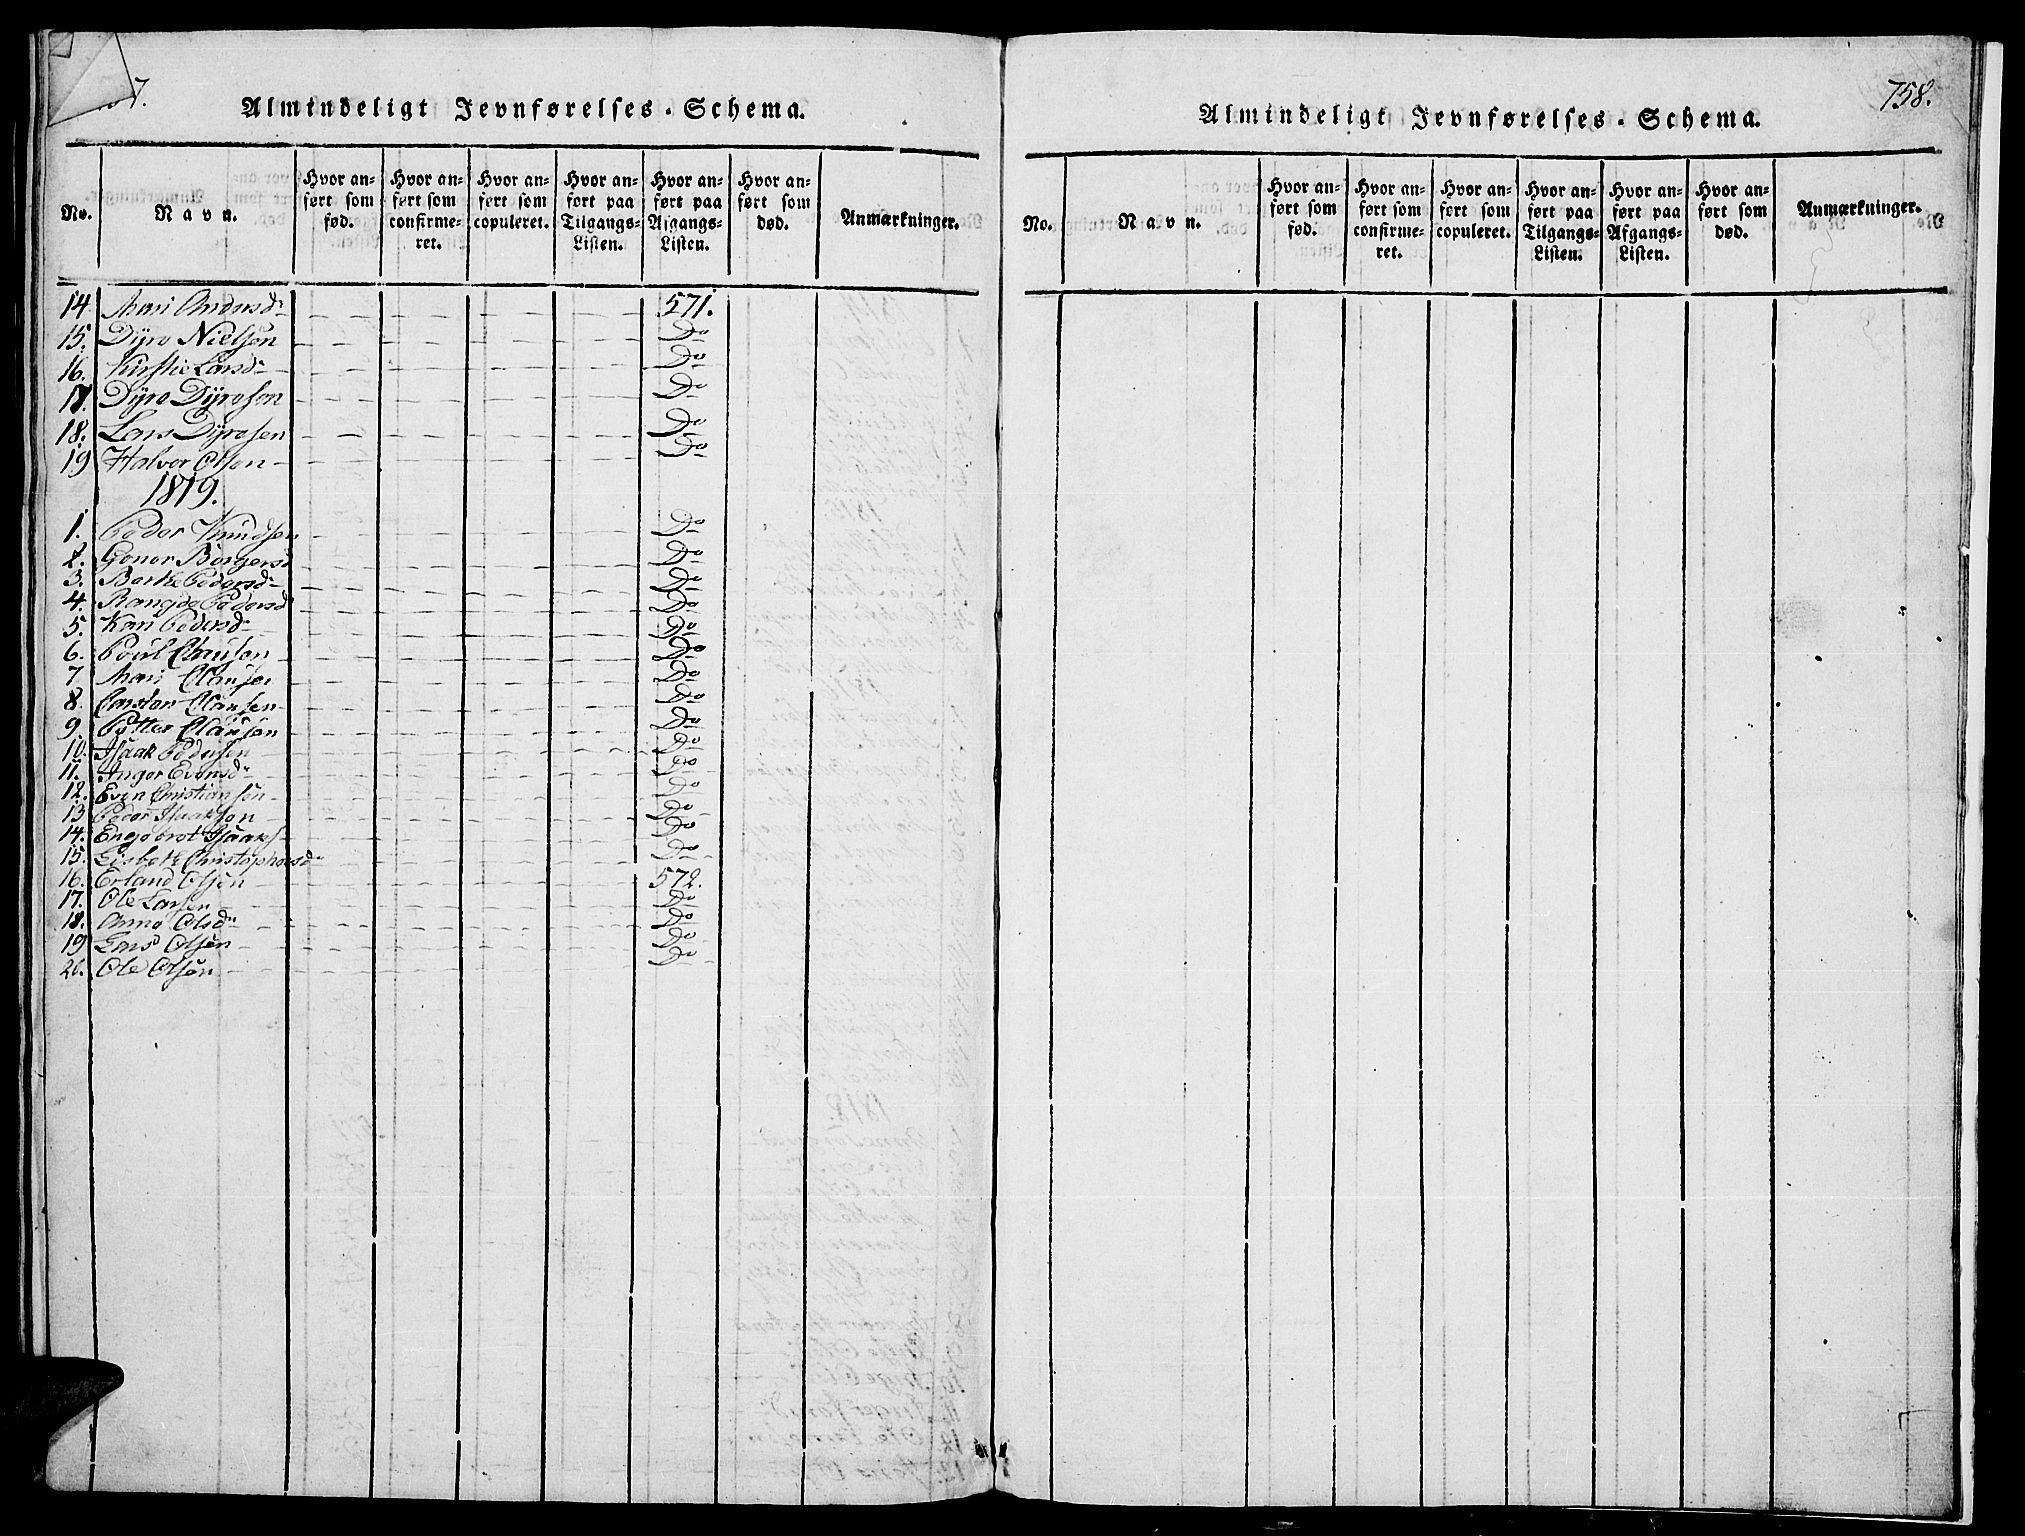 7.
Almindeligt Jevnførelses-Schema.
No. Navn. Hvor anført som fød. Hvor anført som confirmeret. Hvor anført som copuleret. Hvor anført paa Tilgangs-Listen. Hvor anført paa Afgangs-Listen. Hvor anført som død. Anmærkninger.
14 Mari Andersd 571.
15. Dÿre Nielsen Do
16. Kirstie Larsd Do
17. Dÿre Dÿresen Do
18. Lars Dÿresen Do
19 Halvor Olsen Do
1819.
1. Peder Knudsen Do
2. Gunor Borgersd Do
3. Berthe Pedersd Do
4. Rangde Pedersd Do
5. Kari Pedersd Do
6. Poul Clausen Do
7 Mari Clausen Do
8. Carsten Clausen Do
9. Petter Clausen Do
10. Isaak Pedersen Do
11. Inger Evensd Do
12. Even Christiansen Do
13 Peder Isaaksen Do
14. Engebret Isaaks Do
15. Lisbeth Christophersd Do
16. Erland Olsen 572.
17. Ole Larsen Do
18. Anne Olsd Do
19 Lars Olsen Do
20. Ole Olsen Do
758.
Almindeligt Jevnførelses-Schema.
No. Navn. Hvor anført som fød. Hvor anført som confirmeret. Hvor anført som copuleret. Hvor anført paa Tilgangs-Listen. Hvor anført paa Afgangs-Listen. Hvor anført som død. Anmærkninger.